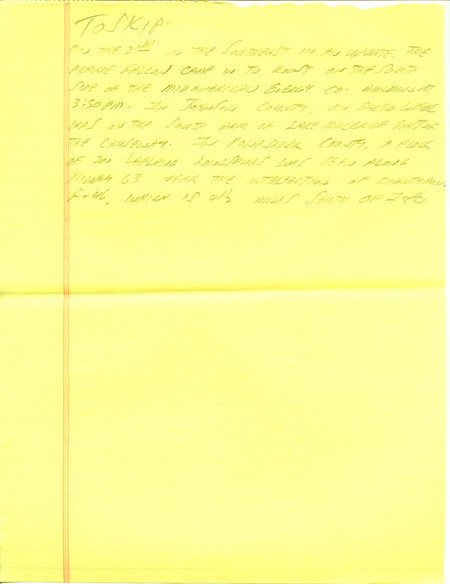 TO SKIP-
ON THE 2ND IN THE SOUTHEAST IN AN UPDATE, THE
PRAIRIE FALCON CAME IN TO ROOST ON THE SOUTH
SIDE OF THE MIDAMERICAN ENERGY CO. BUILDING AT
3:50 PM. IN JOHNSON COUNTY, AN EARED GREBE
WAS ON THE SOUTH ARM OF LAKE MACBRIDE EAST OF
THE CAUSEWAY. IN POWESHIEK COUNTY, A FLOCK
OF 200 LAPLAND LONGSPURS WAS SEEN ALONG
HIWAY 63 NEAR THE INTERSECTION OF COUNTY
F-46, WHICH IS 4½ MILES SOUTH OF I-80